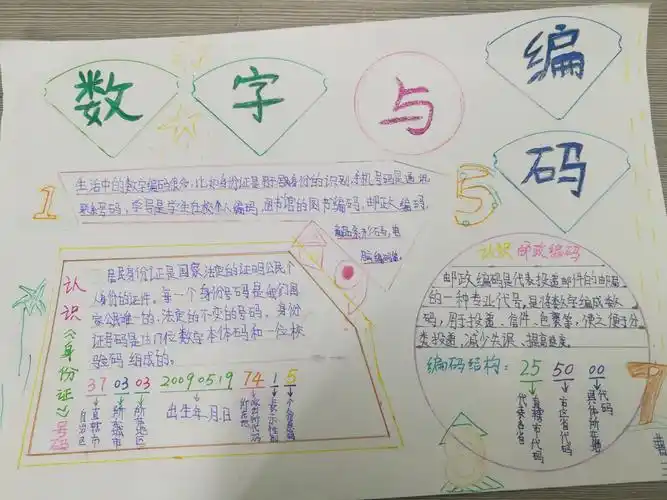 数字与编码
1
生活中的数字编码很多,比如身份证是用于国家身份的识别,手机号码是通讯
联系号码,学号是学生在校本人编码,图书馆的图书编码,邮政编码,
商品条形码,电
脑编码等。
5
认识《身份证》号码
居民身份证是国家法定的证明公民个
人身份的证件。每一个身份号码是我们国
家公民唯一的、法定的不变的号码,身份
证号码是由17位数字本体码和一位校
验码组成的。
37 03 03 20090519 74 1 5
自治区 直辖市
所在城市
所在地区
出生年月日
认识邮政编码
邮政编码是代表投递邮件的邮局
的一种专业代号,
码,用于投递、信件、包裹等,使之便于分
类投递,减少失误,提高速度。
编码结构:25 50 00
代表各省 直辖市代码
市区省代码
代码
7